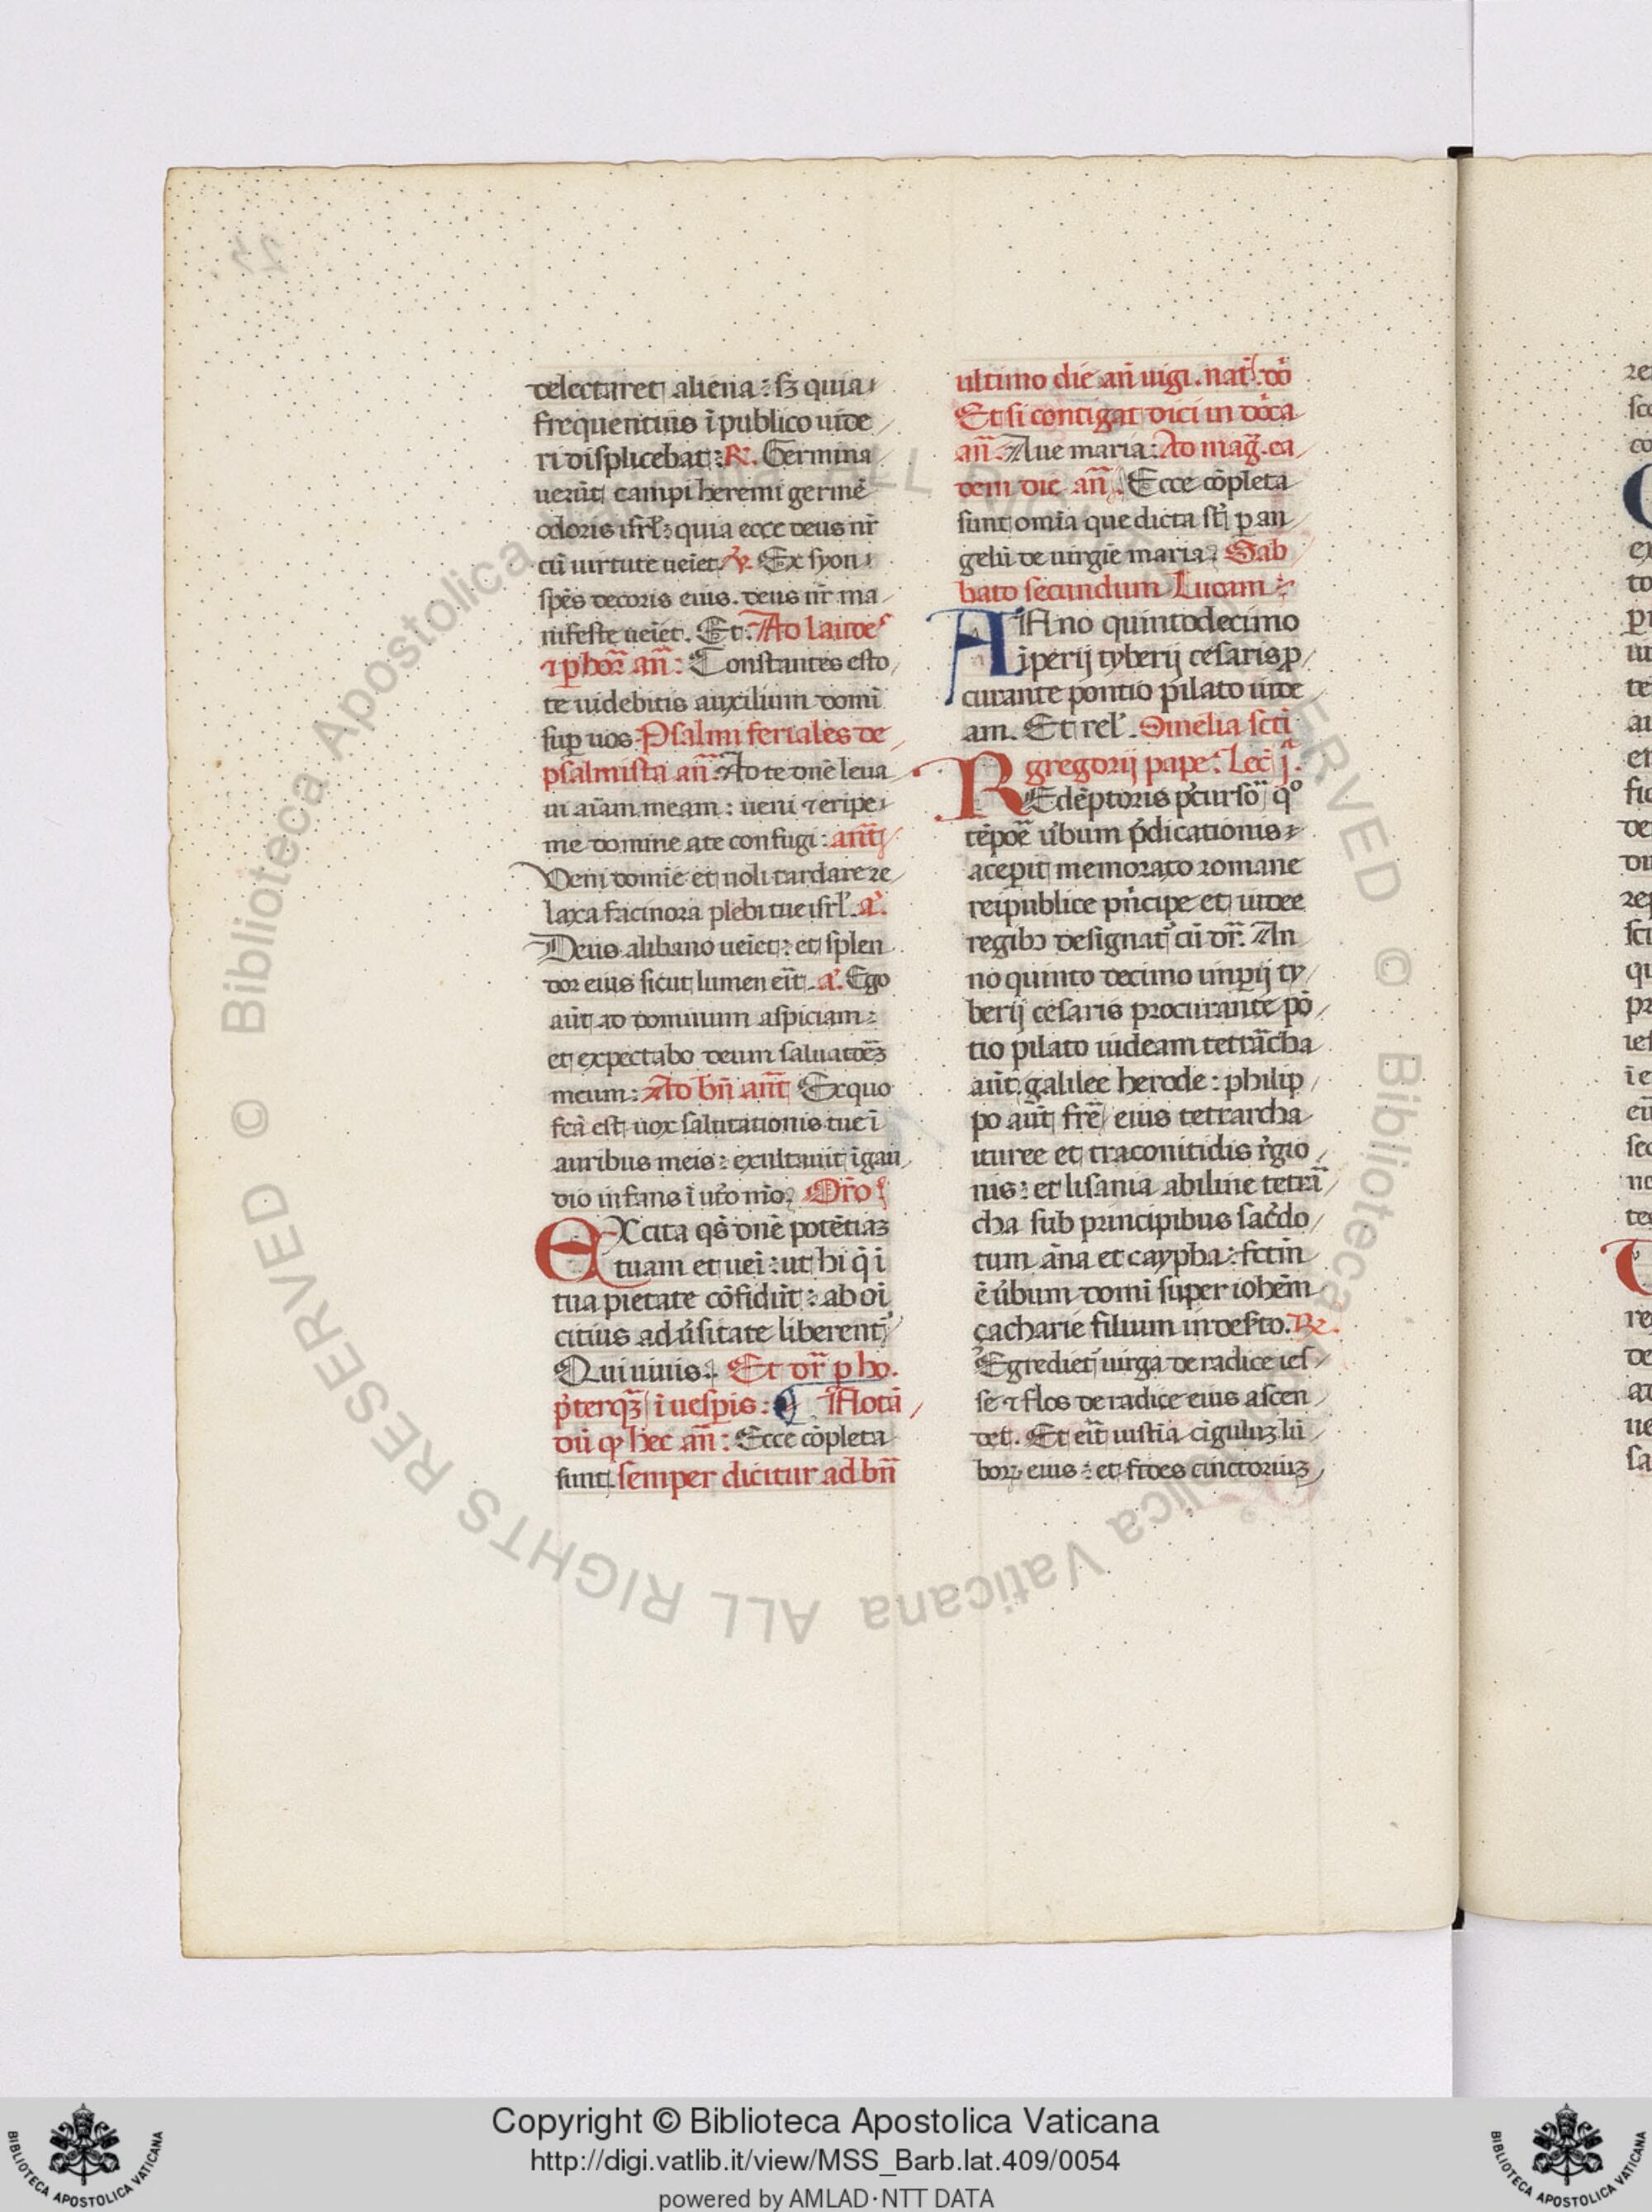 delectaret aliena: sꝫ quia
frequentius ī publico uide
ri displicebat: R. Germina
uerūt campi heremi germē
odoris isrl̄: quia ecce deus nr̄
cū uirtute ueiet. ꝟ. Ex syon
spēs decoris eius. deus nr̄ ma
nifeste ueiet. Et. Ad laudes
⁊ p hor̄ an̄: Constantes esto
te uidebitis auxilium domī
sup uos. Psalmi feriales de
psalmista an̄. Ad te dn̄e leua
ui aīam meam: ueni ⁊ eripe
me domine a te confugi: ant̄
Veni domīe et noli tardare re
laxa facinora plebi tue isrl̄. a.
Deus a libano ueiet: et splen
dor eius sicut lumen erīt. a. Ego
aūt ad dominum aspiciam:
et expectabo deum saluatoēꝫ
meum: Ad bn̄ ant̄ Ex quo
fcā est uox salutationis tue ī
auribus meis: exultauit ī gau
dio infans ī uto mō. Oro
EXcita qs̄ dn̄e potētiaꝫ
tuam et uei: ut hi q̄ ī
tua pietate cōfidūt: ab oī
citius aduersitate liberent
Qui uiuis. Et dr̄ p ho.
p̄terqꝫ ī uespis: ¶ Notā
dū ꝙ hec an̄: Ecce cōpleta
sunt. semper dicitur ad bn̄
ultimo die an̄ uigi. nat. dō
Et si contigat dici in dōca
an̄. Aue maria: Ad mag. ea
dem die an̄. Ecce cōpleta
sunt omīa que dicta st̄ p an
gelū de uirgīe maria. Sab
bato secundum Lucam:
ANno quintodecimo
īperij tyberij cesaris ꝓ
curante pontio pilato iude
am. Et rel. Omelia scti
gregorij pape. Lec j.
REdēptoris p̄cursō qº
tēpoē ubum p̄dicationis
acepit memorato romane
reipublice pncipe et iudee
regibꝫ designat cū dr̄. An
no quinto decimo imperij ty
berij cesaris procurante pō
tio pilato iudeam tetrācha
aūt galilee herode: philip
po aūt frē eius tetrarcha
ituree et traconitidis rgio
nis: et lisania abiline tetrā
cha sub principibus sacdo
tum āna et caypha: fctm
ē ubum domī super iohēm
çacharie filium in desto. R.
Egrediet uirga de radice ies
se ⁊ flos de radice eius ascen
det. Et erīt iustīa cīguluꝫ lū
boꝝ eius: et fides cinctoriuꝫ
Copyright © Biblioteca Apostolica Vaticana
http://digi.vatlib.it/view/MSS_Barb.lat.409/0054
powered by AMLAD·NTT DATA
BIBLIOTECA APOSTOLICA VATICANA
BIBLIOTECA APOSTOLICA VATICANA
© Biblioteca Apostolica Vaticana ALL RIGHTS RESERVED © Biblioteca Apostolica Vaticana ALL RIGHTS RESERVED